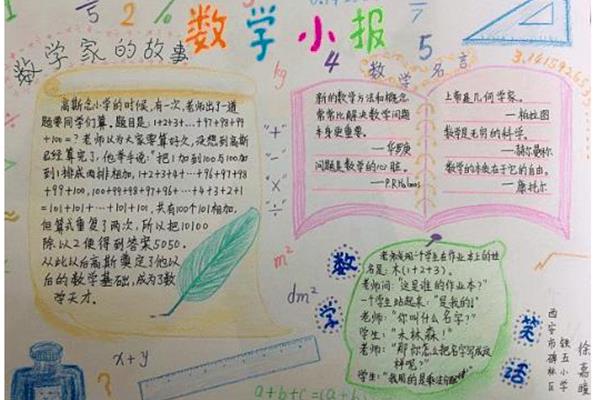 数学小报
1
5 2 %
7
4
5
3.141592653
数学家的故事
高斯念小学的时候,有一次,老师出了一道
题要同学们算。题目是:1+2+3…+97+98+99
+100=?老师以为大家要算好久,没想到高斯
已经算完了,他举手说:"把1加到100与100加
到1排成两排相加,1+2+3+4…+96+97+98
+99+100,100+99+98+97+96+…+4+3+2+1
=101+101+…+101+101,共有100个101相加,
但算式重复了两次,所以把10100
除以2便得到答案5050。
从此以后高斯奠定了他以
后的数学基础,成为了数
学天才。
kg
"+"
"-"
"×"
"÷"
m²
dm²
数学名言
新的数学方法和概念,
常常比解决数学问题
本身更重要。
—华罗庚
问题是数学的心脏。
—P.R.Halmos
上帝是几何学家。
—柏拉图
数学是无穷的科学。
—赫尔曼外尔
数学的本质在于它的自由。
—康托尔
数学笑话
老师发现一个学生在作业本上的姓
名是:木(1+2+3)。
老师问:"这是谁的作业本?"
一个学生站起来:"是我的!"
老师:"你叫什么名字?"
学生:"木林森!"
老师:"那你怎么把名字写成这
样呢?"
学生:"我用的是乘法分配律
西安市碑林区
铁五小学
徐嘉
x+y
?
a+b+c=(a+b